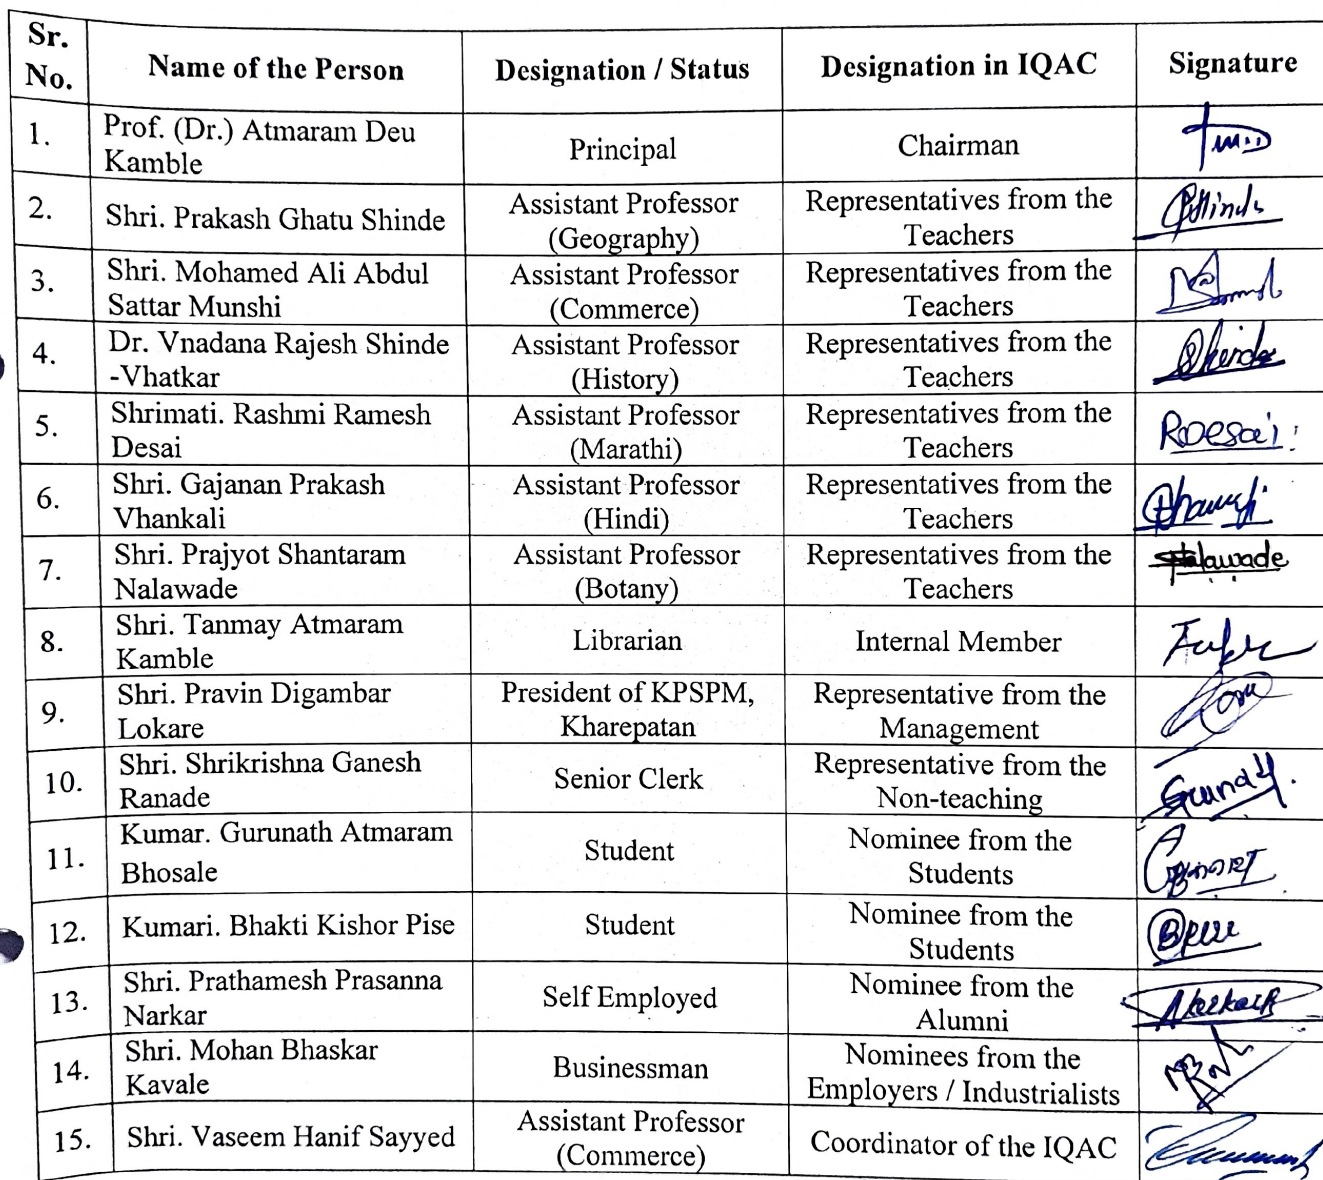 Sr. No. Name of the Person Designation / Status Designation in IQAC Signature
1. Prof. (Dr.) Atmaram Deu Kamble Principal Chairman
2. Shri. Prakash Ghatu Shinde Assistant Professor (Geography) Representatives from the Teachers
3. Shri. Mohamed Ali Abdul Sattar Munshi Assistant Professor (Commerce) Representatives from the Teachers
4. Dr. Vnadana Rajesh Shinde -Vhatkar Assistant Professor (History) Representatives from the Teachers
5. Shrimati. Rashmi Ramesh Desai Assistant Professor (Marathi) Representatives from the Teachers
6. Shri. Gajanan Prakash Vhankali Assistant Professor (Hindi) Representatives from the Teachers
7. Shri. Prajyot Shantaram Nalawade Assistant Professor (Botany) Representatives from the Teachers
8. Shri. Tanmay Atmaram Kamble Librarian Internal Member
9. Shri. Pravin Digambar Lokare President of KPSPM, Kharepatan Representative from the Management
10. Shri. Shrikrishna Ganesh Ranade Senior Clerk Representative from the Non-teaching
11. Kumar. Gurunath Atmaram Bhosale Student Nominee from the Students
12. Kumari. Bhakti Kishor Pise Student Nominee from the Students
13. Shri. Prathamesh Prasanna Narkar Self Employed Nominee from the Alumni
14. Shri. Mohan Bhaskar Kavale Businessman Nominees from the Employers / Industrialists
15. Shri. Vaseem Hanif Sayyed Assistant Professor (Commerce) Coordinator of the IQAC